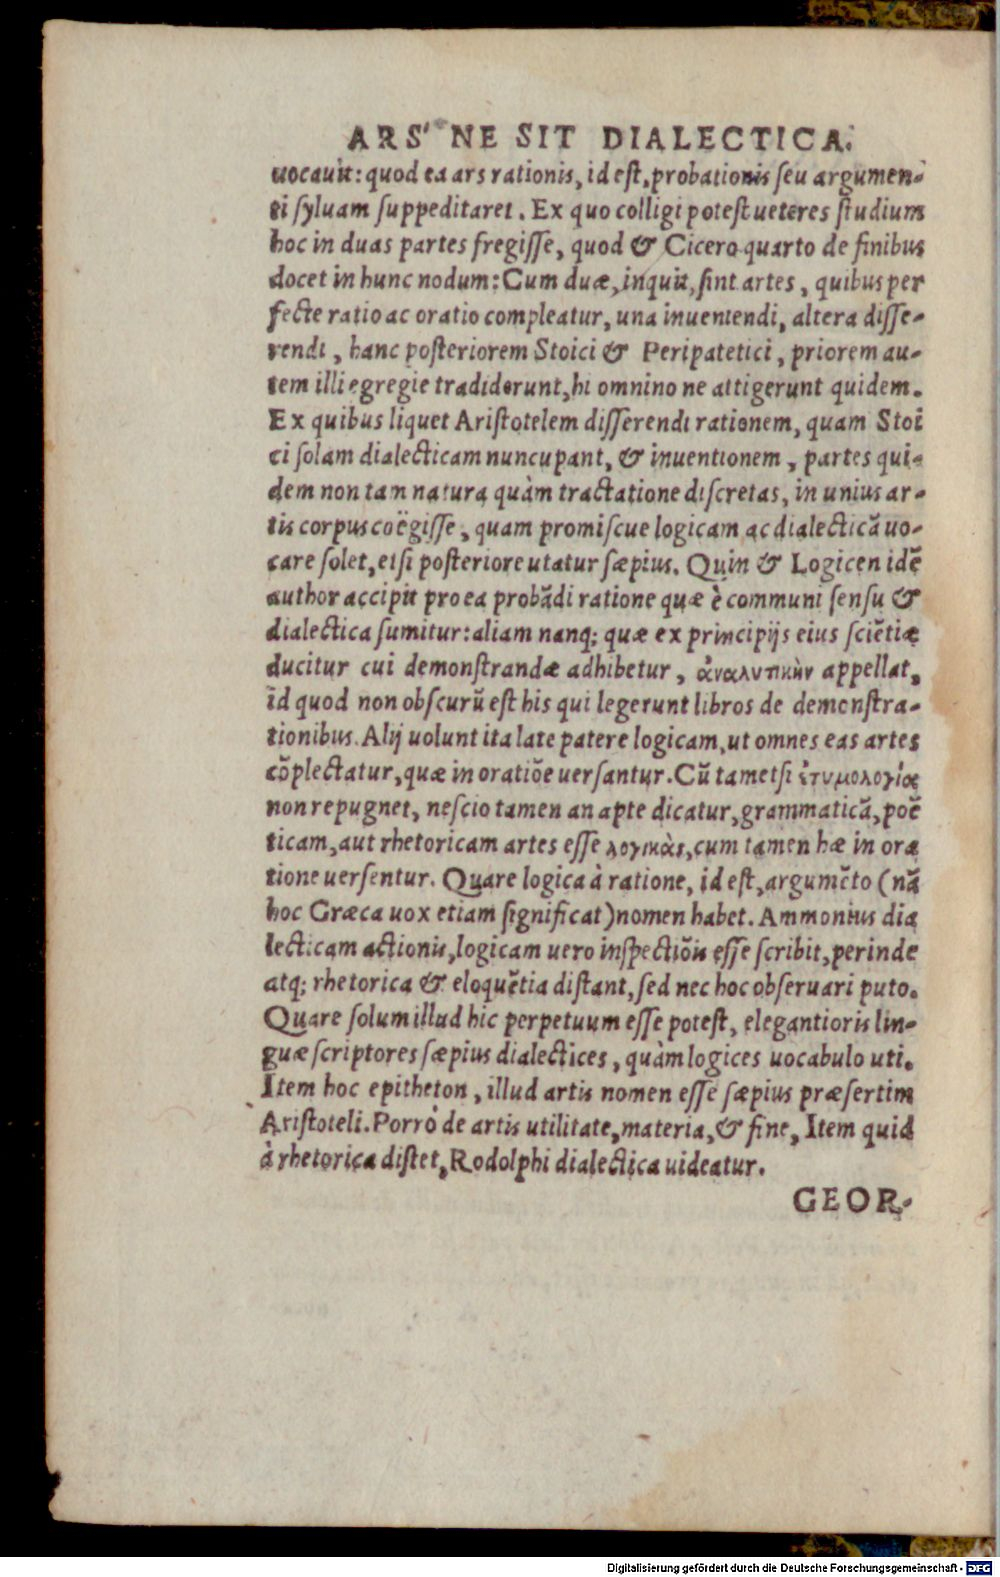 ARS' NE SIT DIALECTICA.
uocauit: quod ea ars rationis, id est, probationis seu argumen-
ti syluam suppeditaret. Ex quo colligi potest ueteres studium
hoc in duas partes fregisse, quod & Cicero quarto de finibus
docet in hunc nodum: Cum duæ, inquit, sint artes, quibus per
fecte ratio ac oratio compleatur, una inueniendi, altera disse-
rendi, hanc posteriorem Stoici & Peripatetici, priorem au-
tem illi egregie tradiderunt, hi omnino ne attigerunt quidem.
Ex quibus liquet Aristotelem disserendi rationem, quam Stoi
ci solam dialecticam nuncupant, & inuentionem, partes qui-
dem non tam natura quàm tractatione discretas, in unius ar-
tis corpus coëgisse, quam promiscue logicam ac dialecticā uo-
care solet, etsi posteriore utatur sæpius. Quin & Logicen idē
author accipit pro ea probādi ratione quæ è communi sensu &
dialectica sumitur: aliam nanq; quæ ex principijs eius sciētiæ
ducitur cui demonstrandæ adhibetur, ἀναλυτικὴν appellat,
id quod non obscurū est his qui legerunt libros de demonstra-
tionibus. Alij uolunt ita late patere logicam, ut omnes eas artes
cōplectatur, quæ in oratiōe uersantur. Cū tametsi ἐτυμολογίᾳ
non repugnet, nescio tamen an apte dicatur, grammaticā, poē
ticam, aut rhetoricam artes esse λογικὰς, cum tamen hæ in ora
tione uersentur. Quare logica à ratione, id est, argumēto (nā
hoc Græca uox etiam significat) nomen habet. Ammonius dia
lecticam actionis, logicam uero inspectiōis esse scribit, perinde
atq; rhetorica & eloquētia distant, sed nec hoc obseruari puto.
Quare solum illud hic perpetuum esse potest, elegantioris lin-
guæ scriptores sæpius dialectices, quàm logices uocabulo uti.
Item hoc epitheton, illud artis nomen esse sæpius præsertim
Aristoteli. Porrò de artis utilitate, materia, & fine, Item quid
à rhetorica distet, Rodolphi dialectica uideatur.
GEOR-
Digitalisierung gefördert durch die Deutsche Forschungsgemeinschaft - DFG